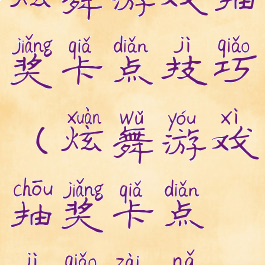 炫舞游戏抽
jiǎng qiǎ diǎn jì qiǎo
奖卡点技巧
xuàn wǔ yóu xì
（炫舞游戏
chōu jiǎng qiǎ diǎn
抽奖卡点
jì qiǎo zài nǎ